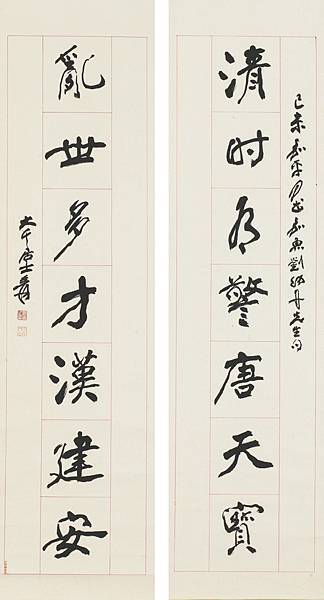 己未嘉平月書嘉興劉丹先生句
清时有警唐天寶
亂世多才漢建安
大千居士爰